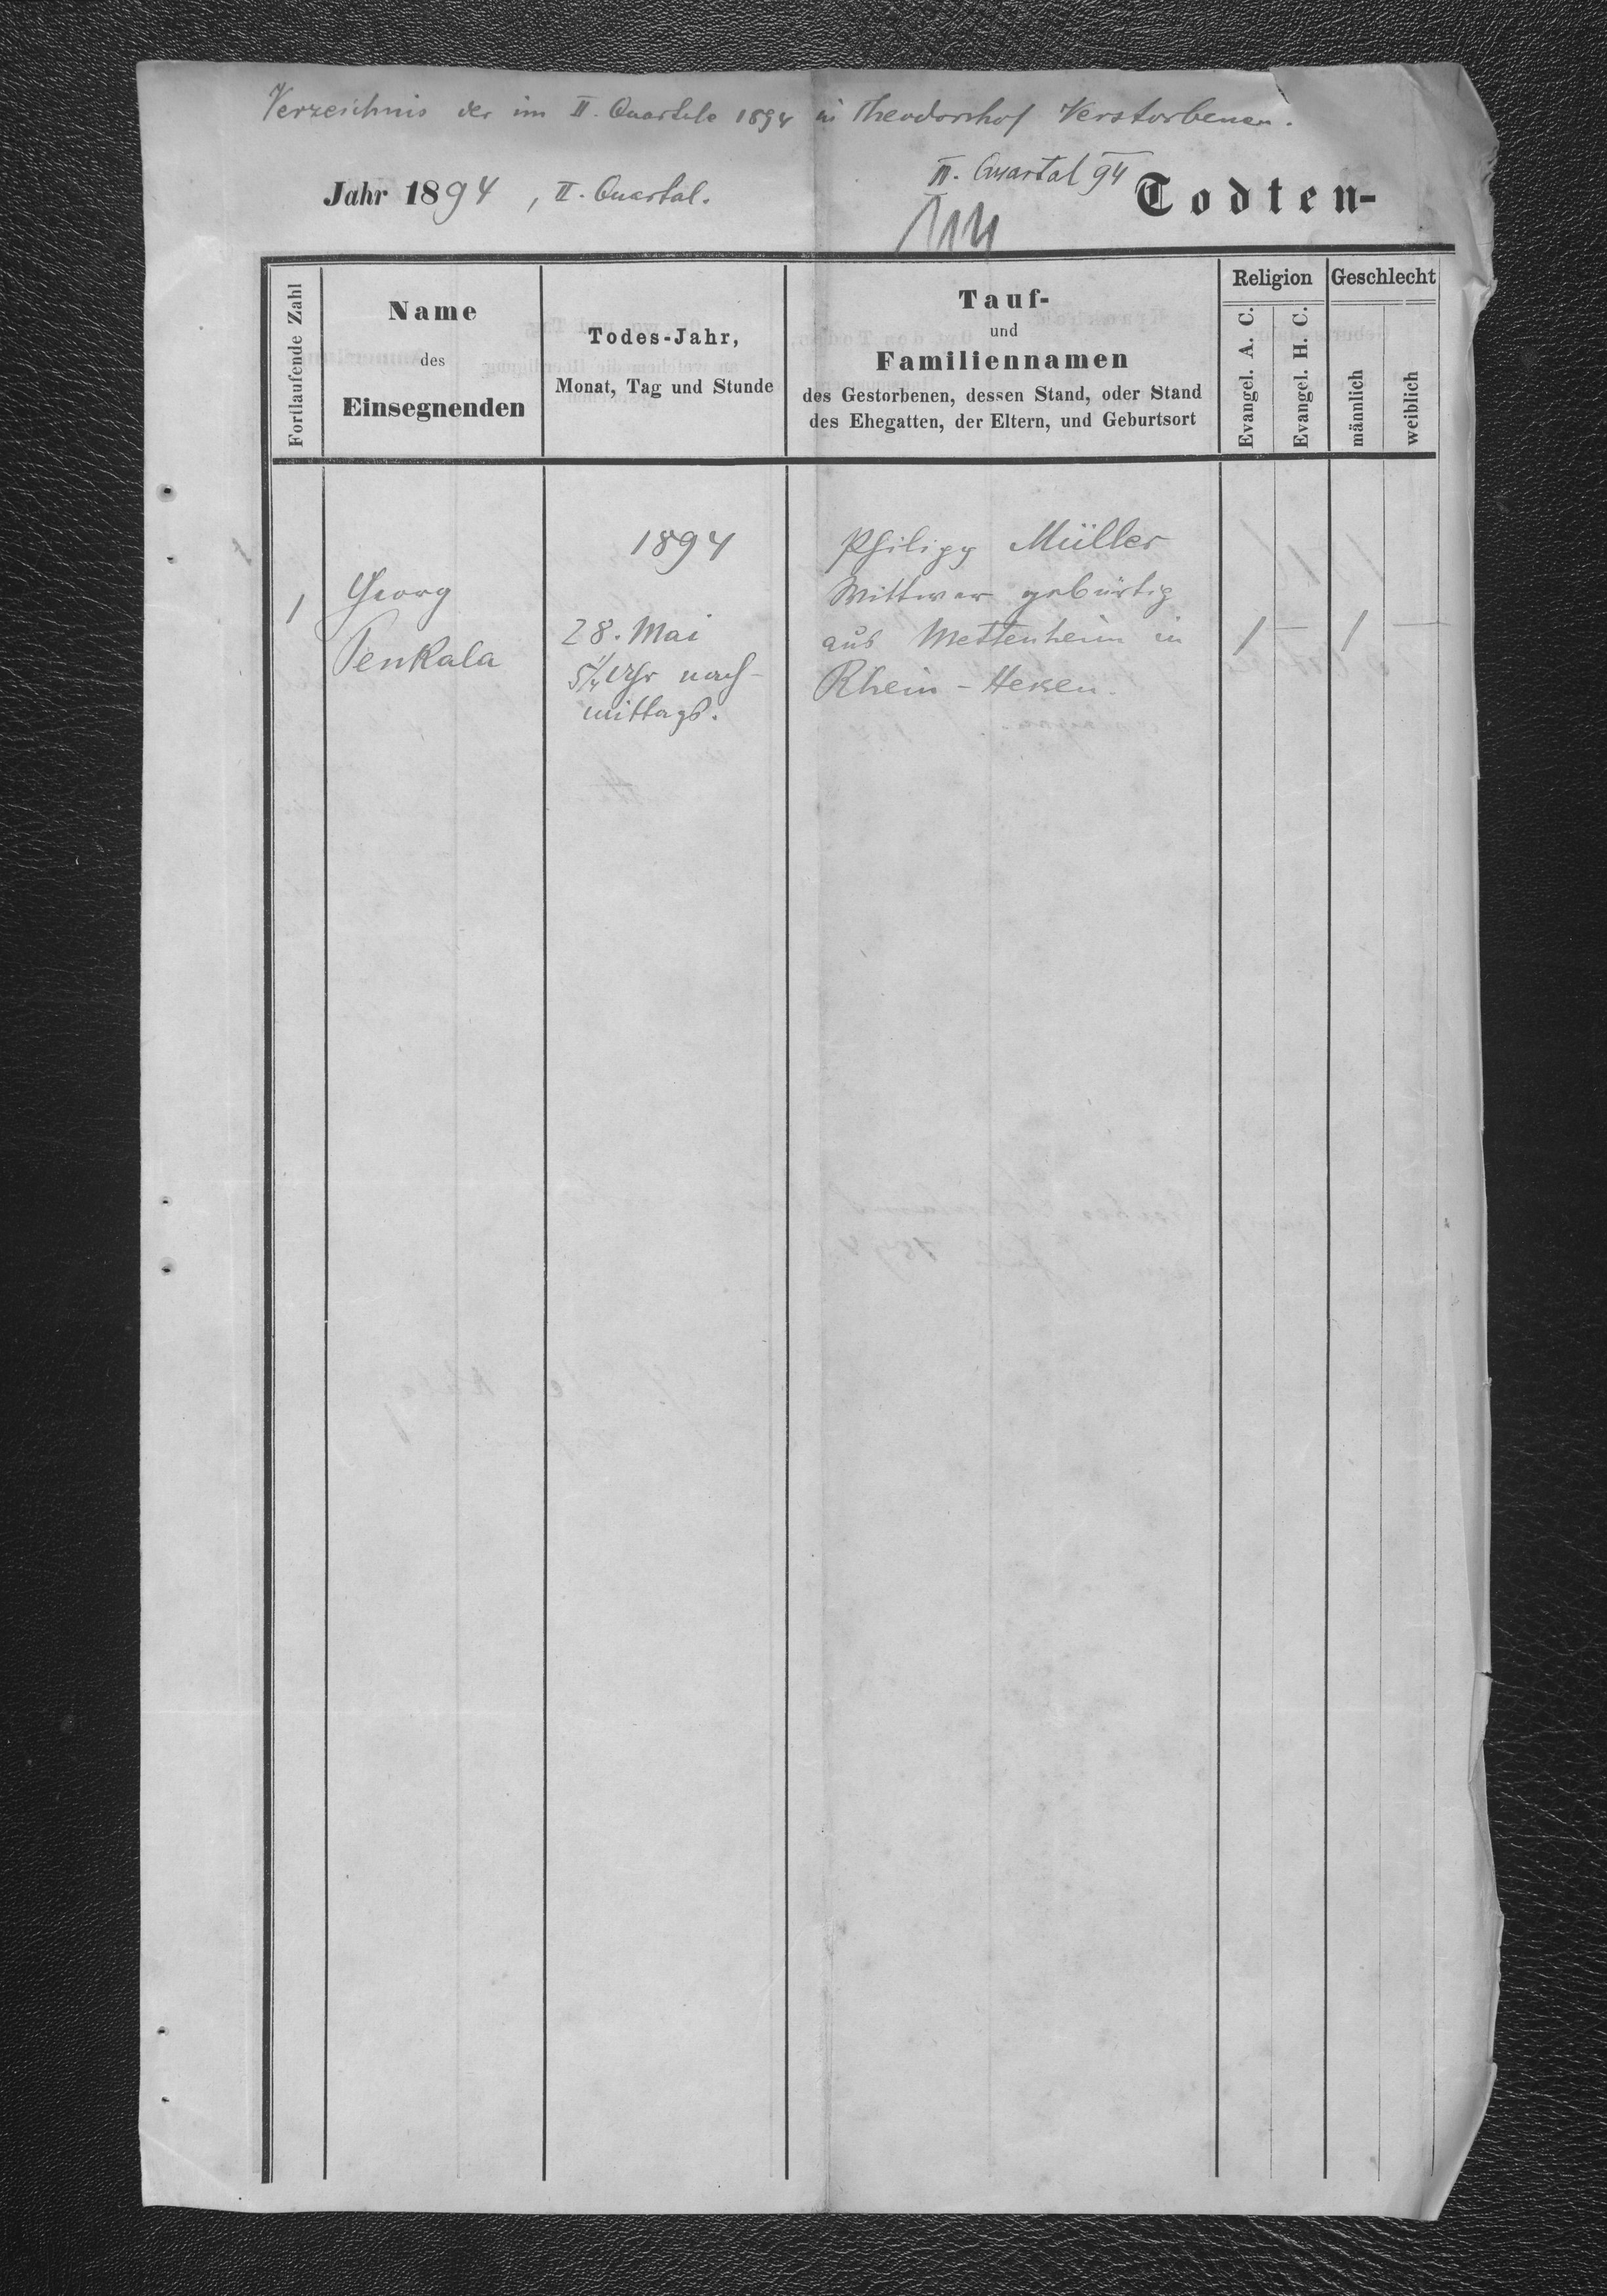 Verzeichnis der im II. Quartale 1894 in Theodorshof Verstorbenen.
Jahr 1894, II. Quartal.
II. Quartal 94
Todten-
Fortlaufende Zahl
Name
des
Einsegnenden
Todes-Jahr,
Monat, Tag und Stunde
Tauf-
und
Familiennamen
des Gestorbenen, dessen Stand, oder Stand
des Ehegatten, der Eltern, und Geburtsort
Religion
Evangel. A. C.
Evangel. H. C.
Geschlecht
männlich
weiblich
1
Georg
Penkala
1894
28. Mai
5 1/4 Uhr nach-
mittags.
Philipp Müller
Wittwer gebürtig
aus Mettenheim in
Rhein-Hessen.
1 — 1 —